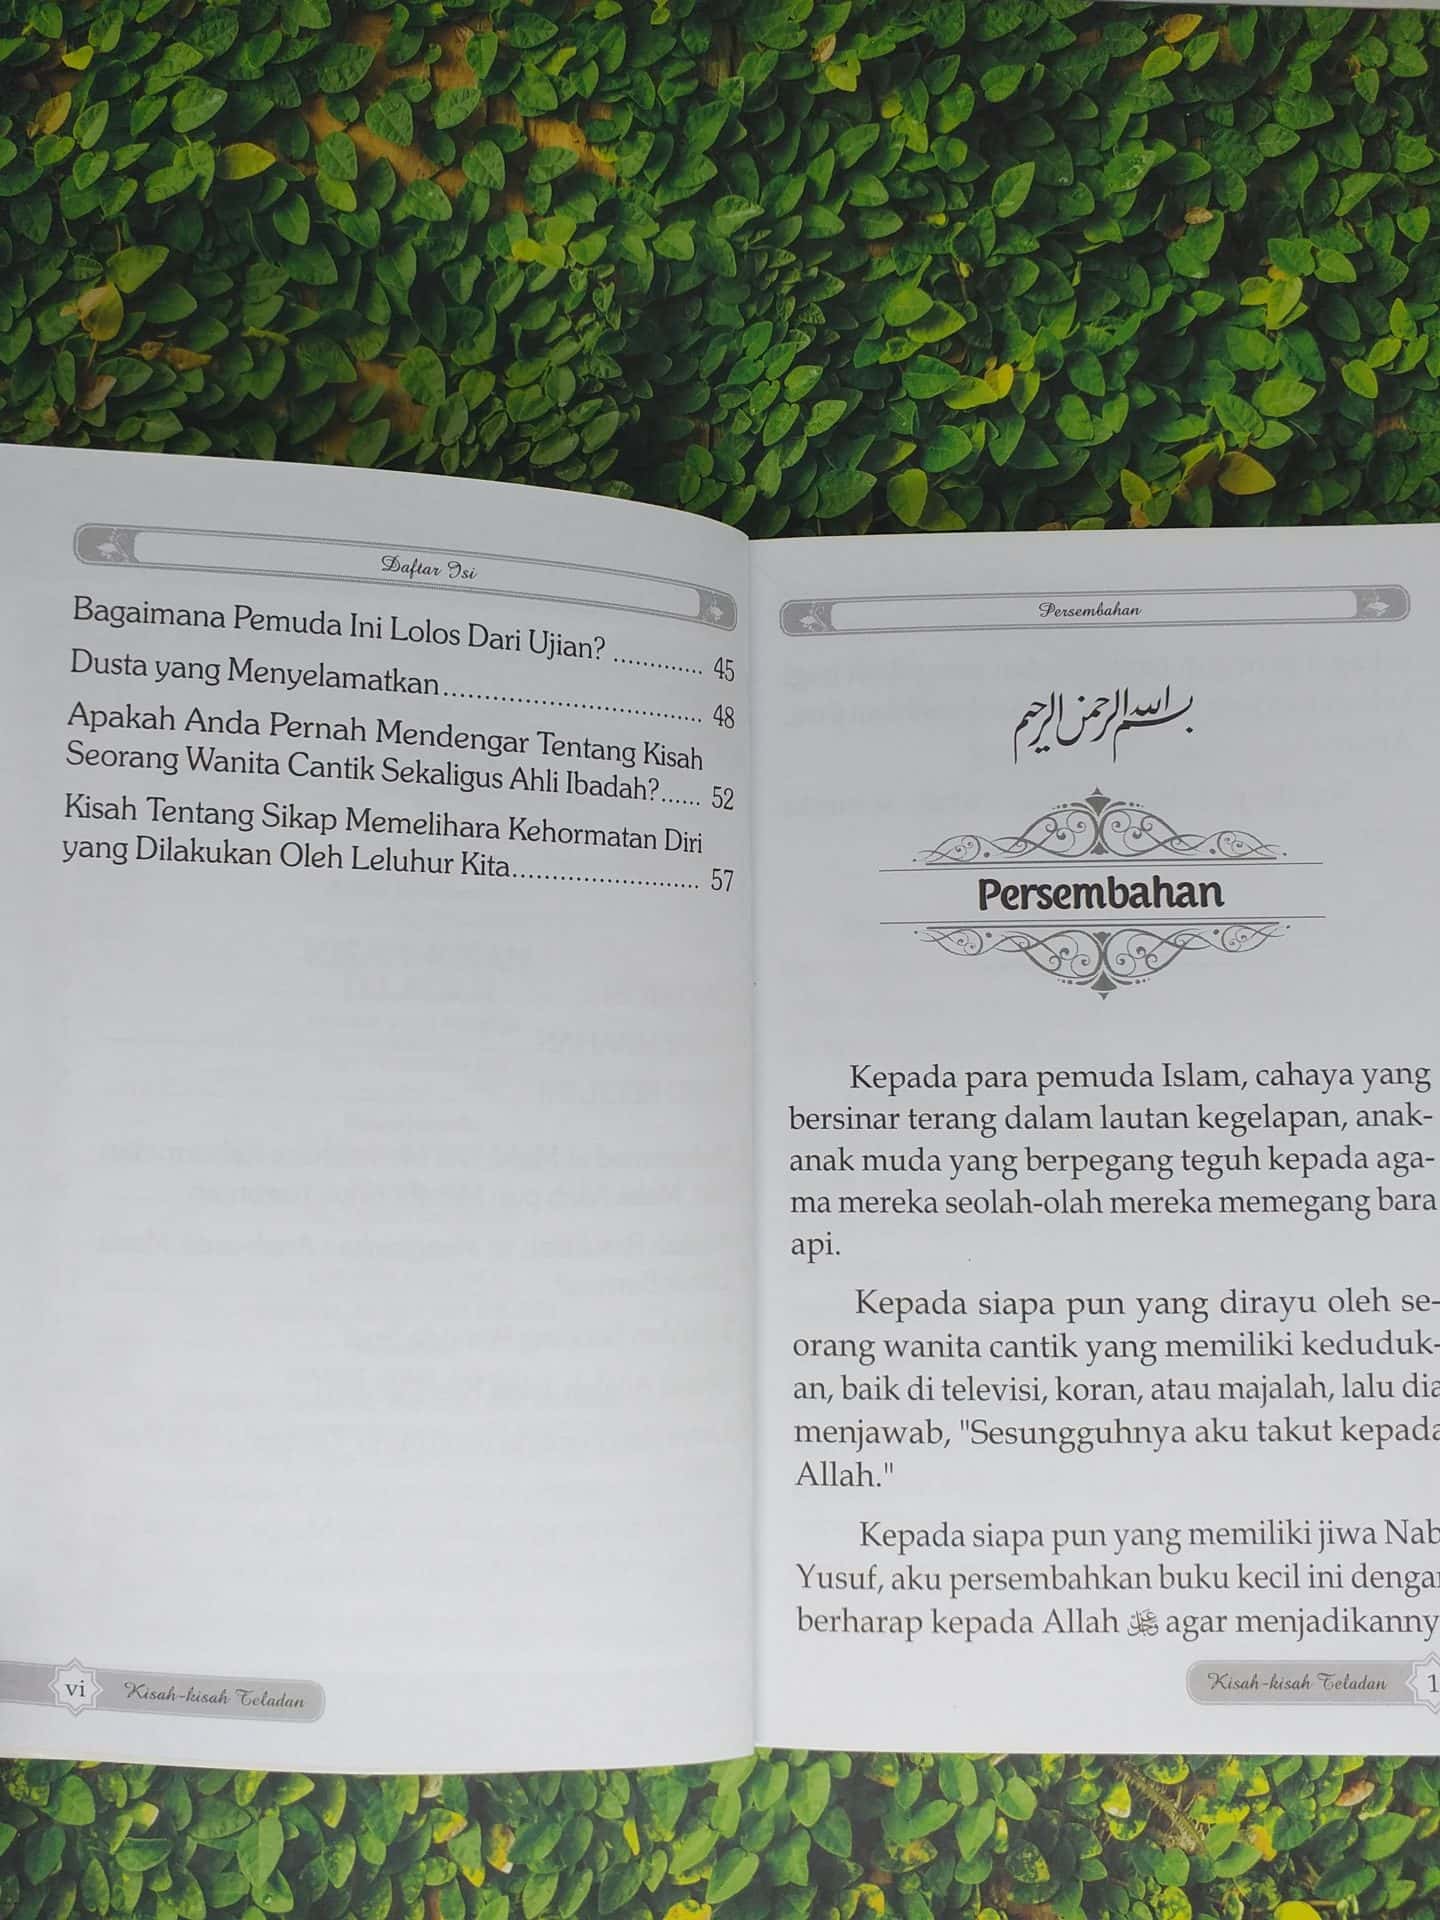 Daftar Isi
Bagaimana Pemuda Ini Lolos Dari Ujian? ............ 45
Dusta yang Menyelamatkan................................ 48
Apakah Anda Pernah Mendengar Tentang Kisah
Seorang Wanita Cantik Sekaligus Ahli Ibadah?...... 52
Kisah Tentang Sikap Memelihara Kehormatan Diri
yang Dilakukan Oleh Leluhur Kita........................ 57
vi
Kisah-kisah Teladan
Persembahan
بسم الله الرحمن الرحيم
Persembahan
Kepada para pemuda Islam, cahaya yang
bersinar terang dalam lautan kegelapan, anak-
anak muda yang berpegang teguh kepada aga-
ma mereka seolah-olah mereka memegang bara
api.
Kepada siapa pun yang dirayu oleh se-
orang wanita cantik yang memiliki keduduk-
an, baik di televisi, koran, atau majalah, lalu dia
menjawab, "Sesungguhnya aku takut kepada
Allah."
Kepada siapa pun yang memiliki jiwa Nab
Yusuf, aku persembahkan buku kecil ini dengan
berharap kepada Allah ﷻ agar menjadikanny
Kisah-kisah Teladan
1